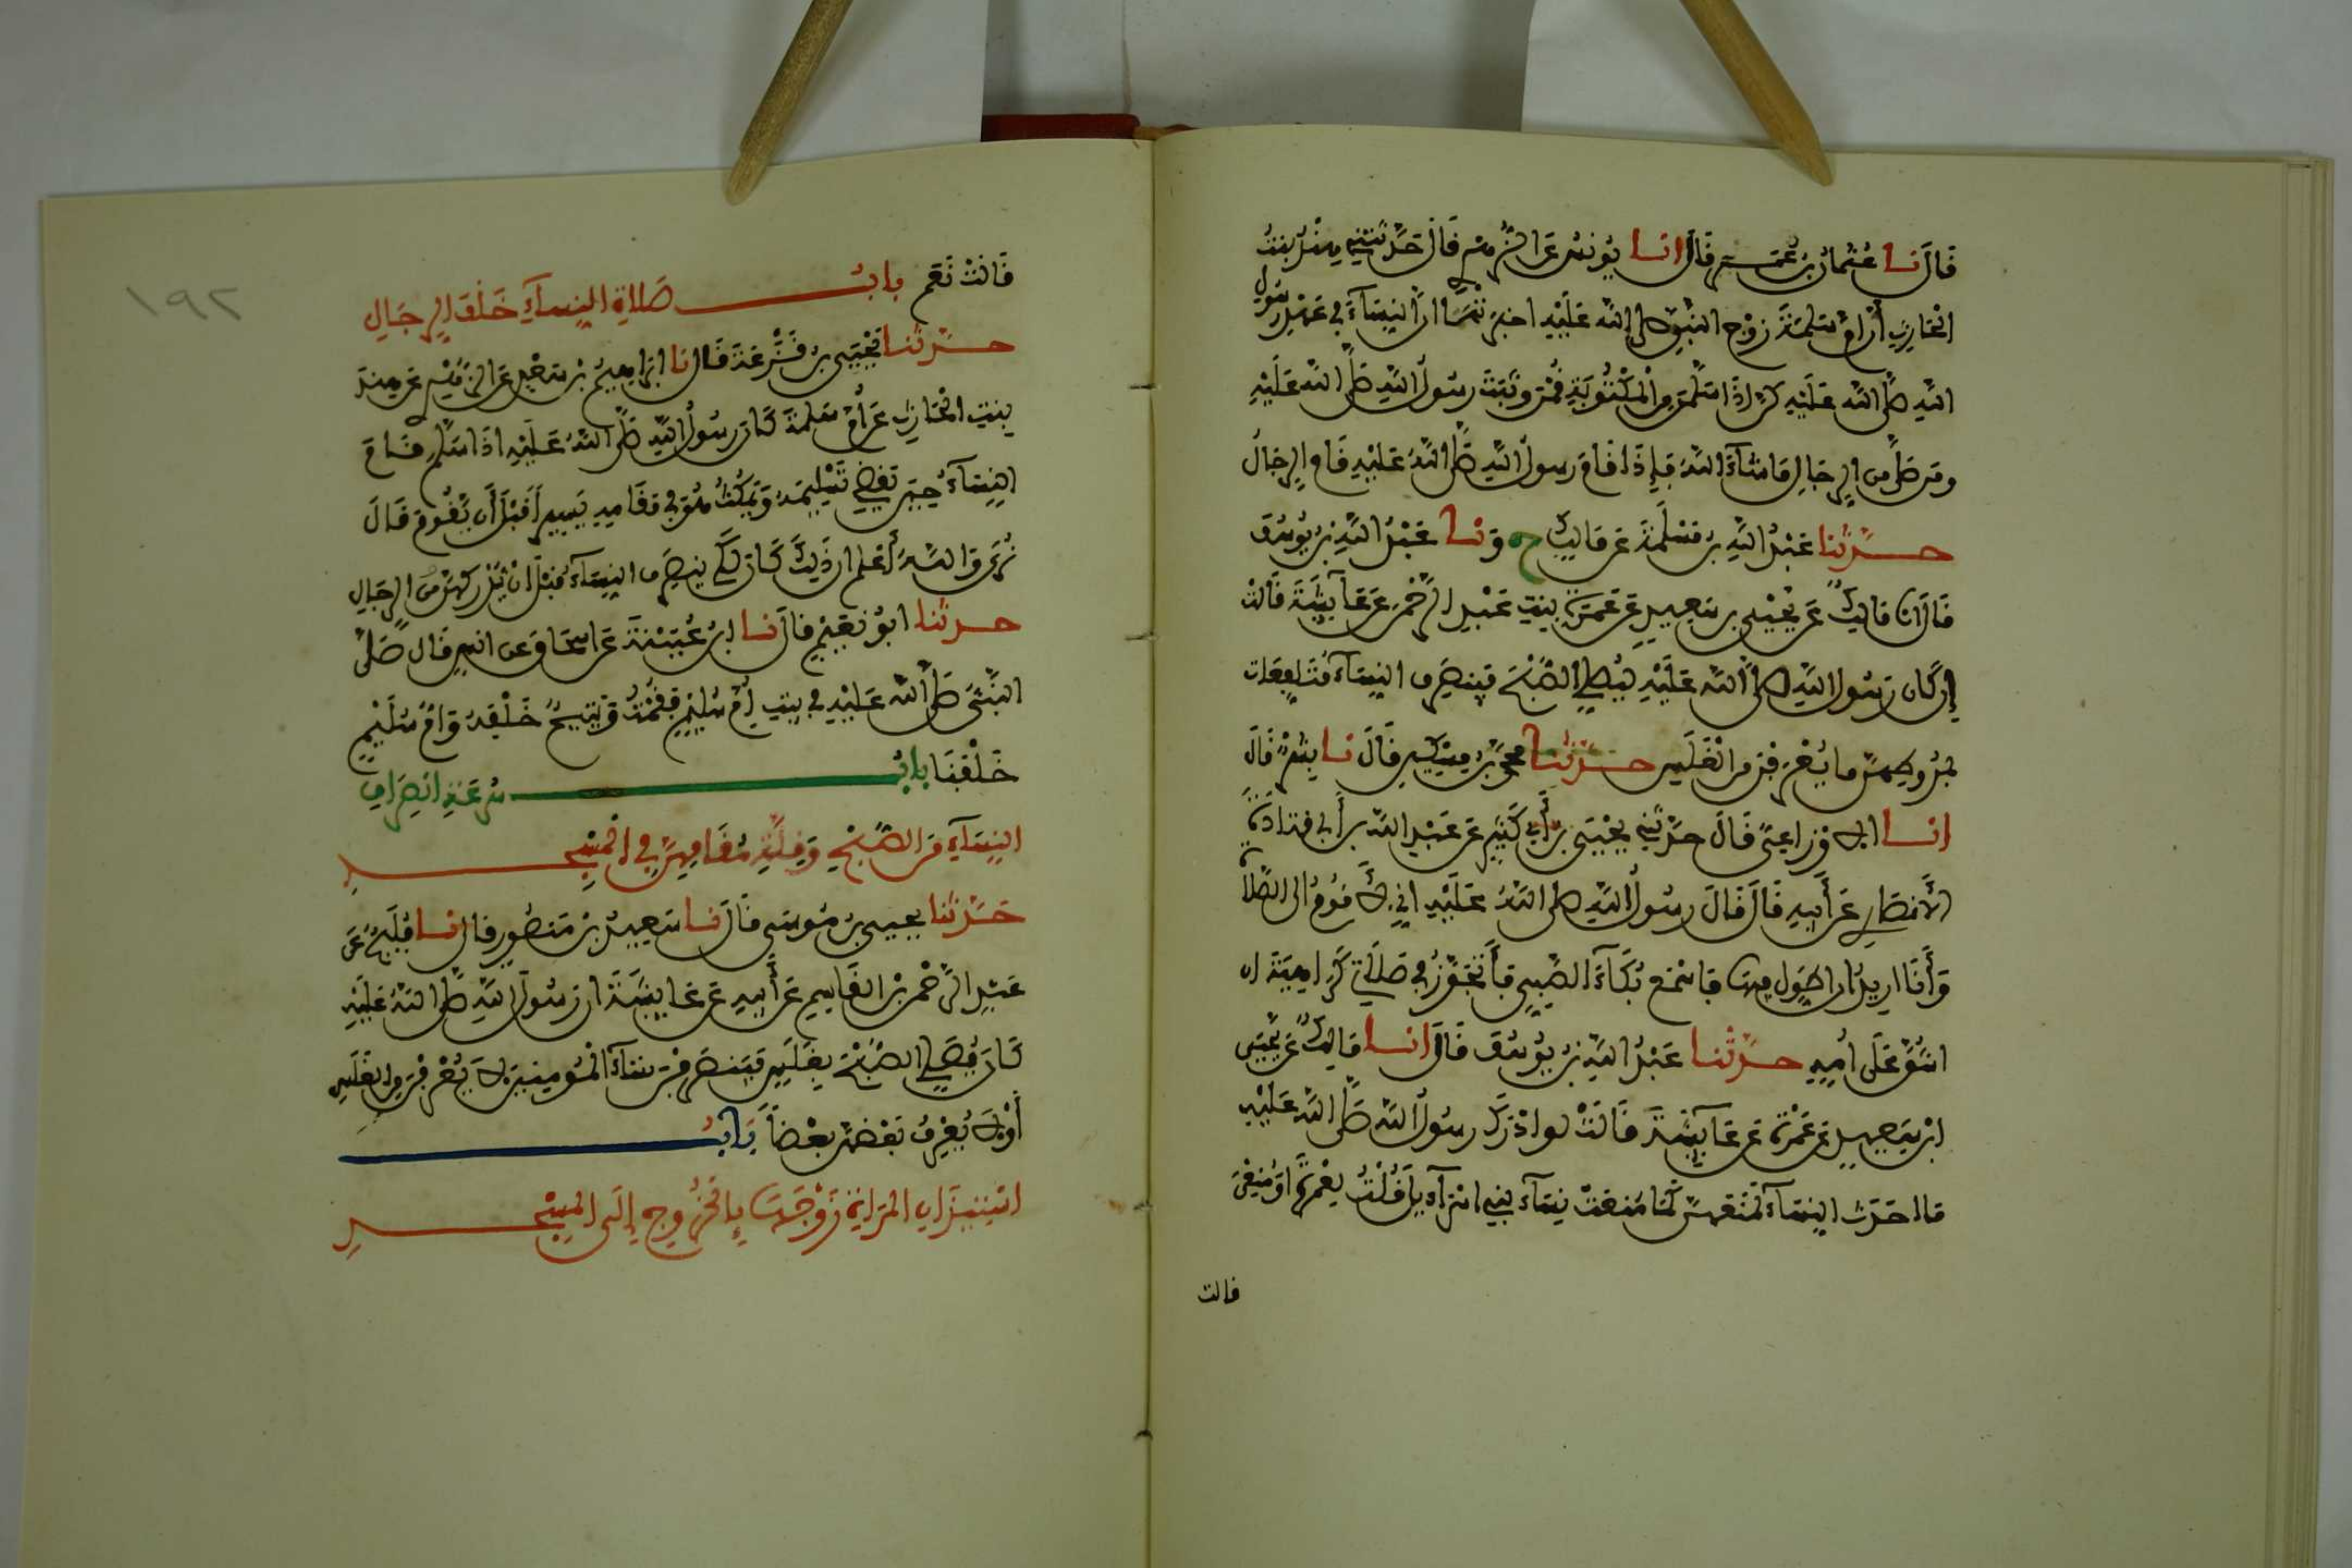 قَالَ نا عُثْمَانُ بْنُ عُمَر قَالَ انا يُونُسُ عَنِ الزُّهْرِيِّ قَالَ حَدَّثَتْنِي هِنْدُ بِنْتُ
الْحَارِثِ أَنَّ أُمَّ سَلَمَةَ زَوْجَ النَّبِيِّ صلى اللَّه عَلَيْهِ اخبَرَتْهَا انَّ النِّسَاءَ فِي عَهْدِ رَسُولِ
اللَّهِ صَلَّى اللَّه عَلَيْهِ كُنَّ إِذَا سَلَّمْنَ مِنَ الْمَكْتُوبَةِ قُمْنَ وَثَبَتَ رَسُولُ اللَّهِ صَلَّى اللَّه عَلَيْهِ
وَمَن صَلَّى مِنَ الرِّجَالِ مَا شَاءَ اللَّهُ فَإِذَا قَامَ رسولُ اللَّهِ صَلَّى اللَّهُ عَلَيْهِ قَامَ الرِّجَالُ
حَدَّثَنا عَبْدُ اللَّهِ بنُ مَسْلَمَةَ عَن مَالِكٍ ح وَنا عَبْدُ اللَّهِ بْنُ يُوسُفَ
قَالَ انا مَالِكٌ عَن يَحْيَى بن سَعِيدٍ عَن عَمْرَةَ بِنْتِ عَبْدِ الرَّحْمَنِ عَن عَائِشَةَ قَالَتْ
إِن كَانَ رَسُولُ اللَّهِ صلى اللَّه عَلَيْهِ لَيُصَلِّي الصُّبْحَ فَيَنصَرِفُ النِّسَاءُ مُتَلَفِّعَات
بِمُرُوطِهِنَّ مَا يُعْرَفْنَ مِنَ الْغَلَسِ حَدَّثَنا محمدُ بنُ مِسْكِينٍ قَالَ نا بِشْرٌ قَالَ
انا الاوْزَاعِيُّ قَالَ حَدَّثَنِي يَحْيَى بنُ أَبِي كَثِيرٍ عَن عَبْدِ اللَّه بن أَبِي قتادَةَ
الأَنصَارِي عَن أَبِيهِ قَالَ قَالَ رسُولُ اللَّهِ صلى اللَّهُ عَلَيْهِ اني لأَقُومُ الى الصَّلاة
وَأَنَا ارِيدُ ان اطَوِّلَ فِيهَا فَاسْمَعُ بُكَاءَ الصَّبِيِّ فَأَتَجَوَّزُ فِي صَلَاتِي كَرَاهِيَةَ ان
اشُقَّ عَلَى أُمِّهِ حَدَّثَنا عَبْدُ اللَّهِ بْنُ يُوسُفَ قَالَ انا مَالِكٌ عَن يَحْيَى
ابْنِ سَعِيدٍ عَن عَمْرَةَ عَن عَائِشَةَ قَالَتْ لَوْ ادْرَكَ رسُولُ اللَّه صَلَّى اللَّه عَلَيْهِ
مَا احَدَثَ النِّسَاءُ لَمَنَعَهُنَّ كَمَا مُنِعَتْ نِسَاءُ بَنِي اسْرَائِيلَ قُلْتُ لِعَمْرَةَ اوَمُنِعْنَ
قالت
قَالَتْ نَعَم بابُ صَلاةِ النِّسَاءِ خَلْفَ الرِّجَالِ
حَدَّثَنا يَحْيَى بنُ قَزَعَةَ قَالَ نا ابْرَاهِيمُ بْنُ سَعْدٍ عَنِ الزُّهْرِيِّ عَن هِنْدَ
بِنْتِ الْحَارِثِ عَن أُمِّ سَلَمَةَ كَانَ رَسُولُ اللَّهِ صَلَّى اللَّهُ عَلَيْهِ اذَا سَلَّمَ قَامَ
النِّسَاءُ حِينَ يَقْضِي تَسْلِيمَهُ وَيَمْكُثُ هُوَ فِي مَقَامِهِ يَسِيراً قَبْلَ أَن يَقُومَ قَالَ
نُرَى وَاللَّهُ أَعْلَمُ ان ذَلِكَ كَانَ لِكَي يَنصَرِفَ النِّسَاءُ قَبْلَ انْ يُدْرِكَهُنَّ مِنَ الرِّجَالِ
حدثنا ابُو نُعَيْمٍ قَالَ نا ابنُ عُيَيْنَةَ عَن اسحَاقَ عن انسٍ قَالَ صَلَّى
النَّبِيُّ صَلَّى اللَّه عَلَيْهِ فِي بيتِ أُمِّ سُلَيْمٍ فَقُمْتُ وَيَتِيمٌ خَلْفَهُ وَامُّ سُلَيْمٍ
خَلْفَنَا بابُ سُرْعَةِ انصِرَافِ
النِّسَاءِ مِنَ الصُّبْحِ وَقِلَّةِ مُقَامِهِنَّ فِي الْمَسْجِدِ
حَدَّثَنا يحيى بنُ مُوسَى قَالَ نا سَعِيدُ بْنُ مَنصُورٍ قَالَ نا فُلَيْحٌ عَن
عَبْدِ الرَّحْمَنِ بْنِ القَاسِمِ عَن أَبِيهِ عَن عَائِشَةَ ان رَسُولَ اللَّهِ صَلَّى اللَّهُ عَلَيْهِ
كَانَ يُصَلِّي الصُّبْحَ بِغَلَسٍ فَيَنصَرِفْنَ نِسَاءُ الْمُومِنِينَ لَا يُعْرَفْنَ مِنَ الْغَلَسِ
أَوْ لَا يَعْرِفُ بَعْضُهُنَّ بَعْضاً بَابُ
اسْتِيذَانِ المَرْأَةِ زَوْجَهَا بِالْخُرُوجِ إِلَى الْمَسْجِدِ
١٩٢